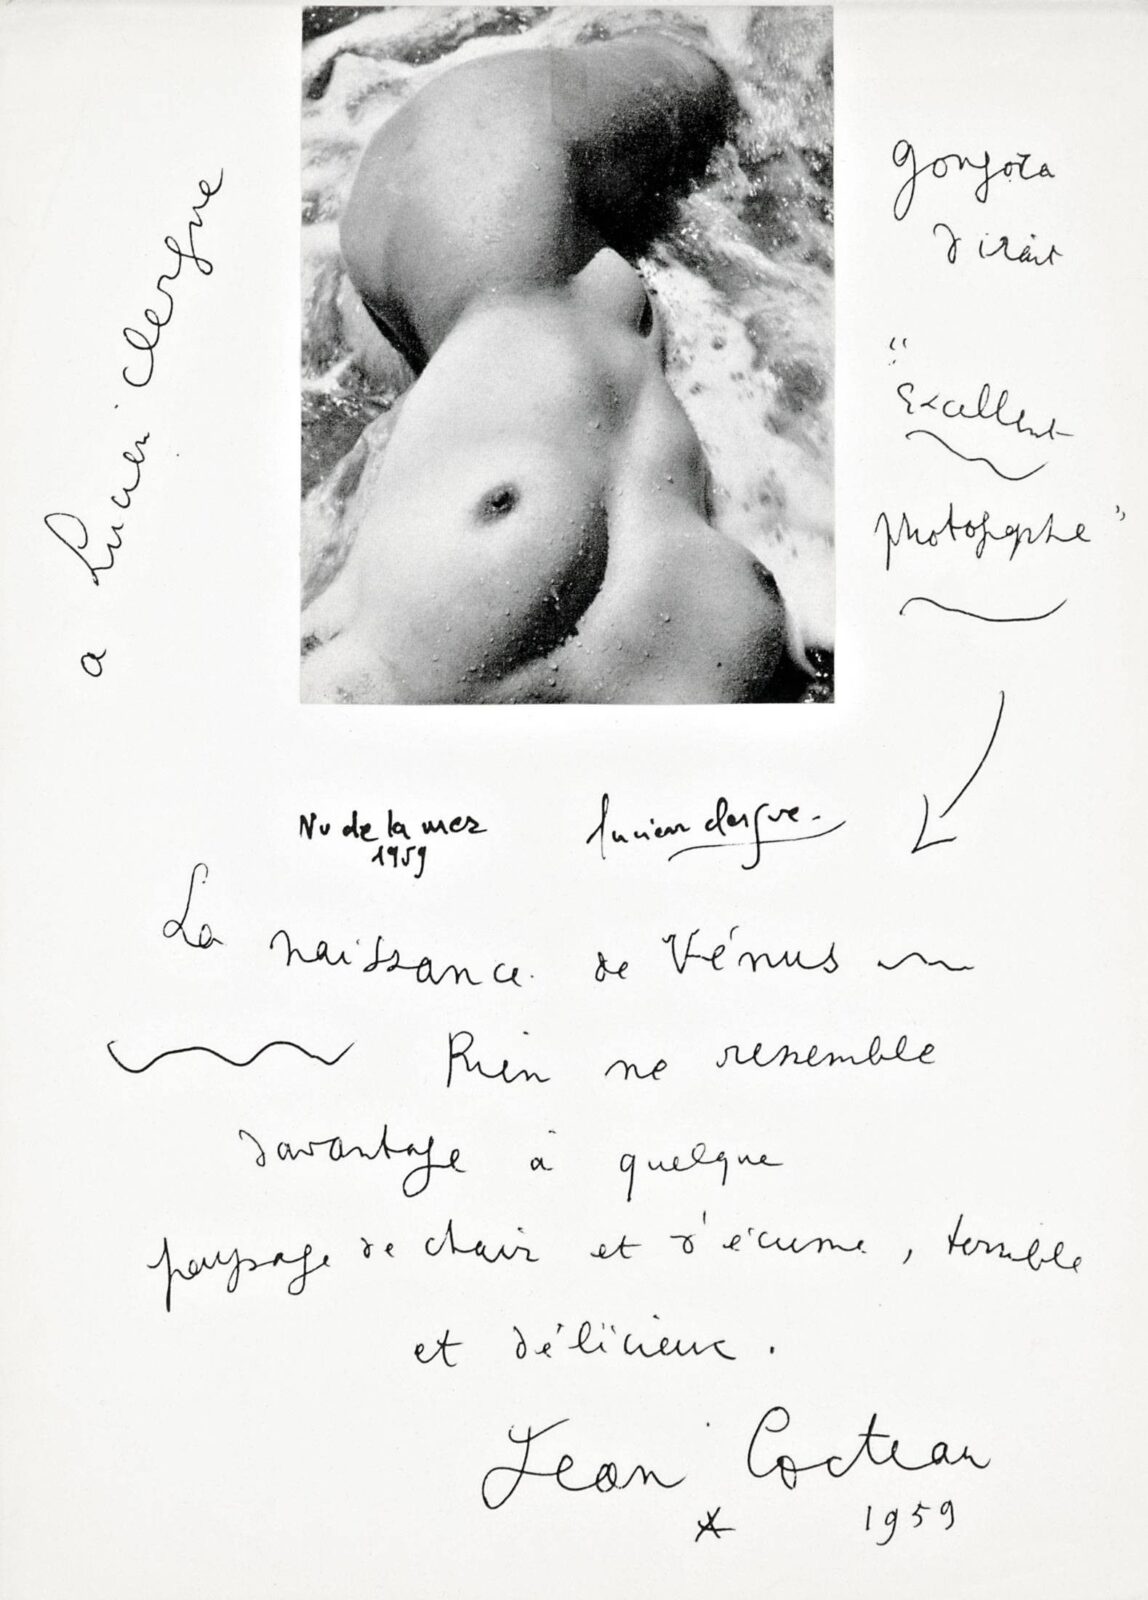 a Lucien Clergue
Gongora
dirait
"
Excellent
photographe"
Nu de la mer
1959
lucien clergue.
La naissance de Vénus
Rien ne ressemble
davantage à quelque
paysage de chair et d'écume, terrible
et délicieux.
Jean Cocteau
* 1959